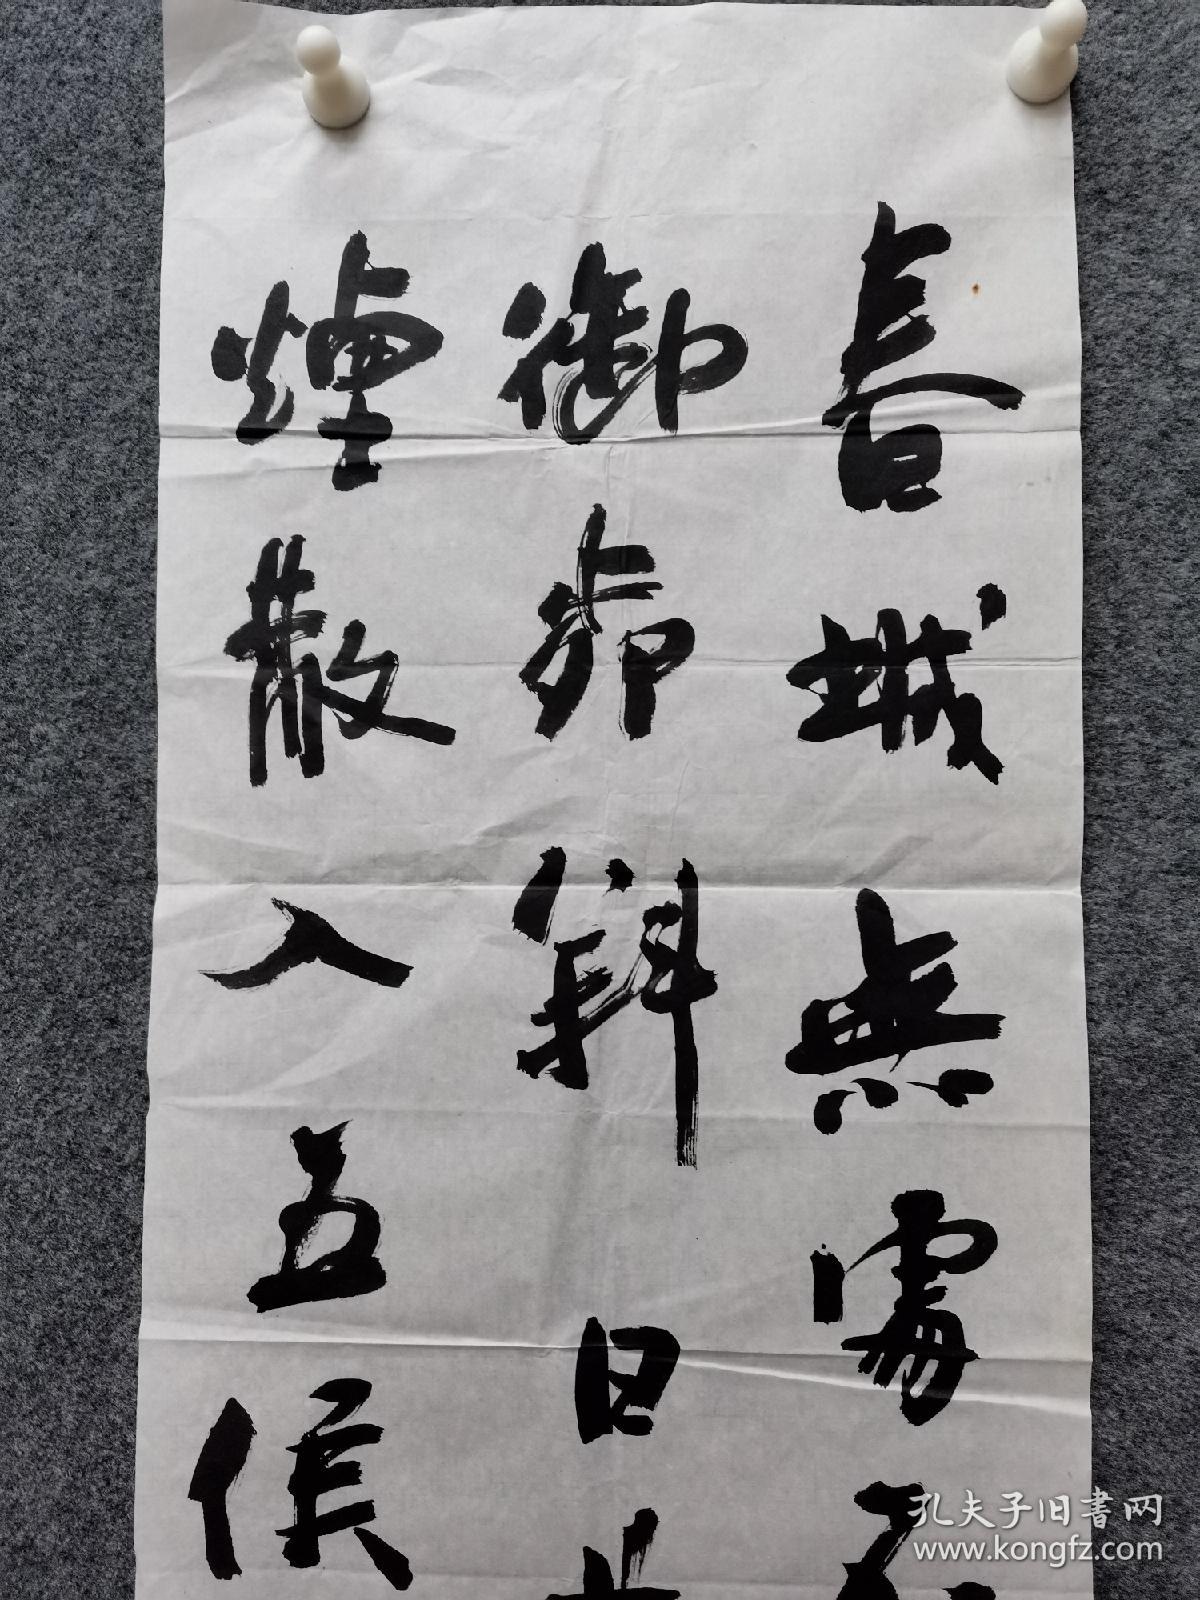 春城無處不
御柳斜日
煙散入五侯
孔夫子旧書网
www.kongfz.com